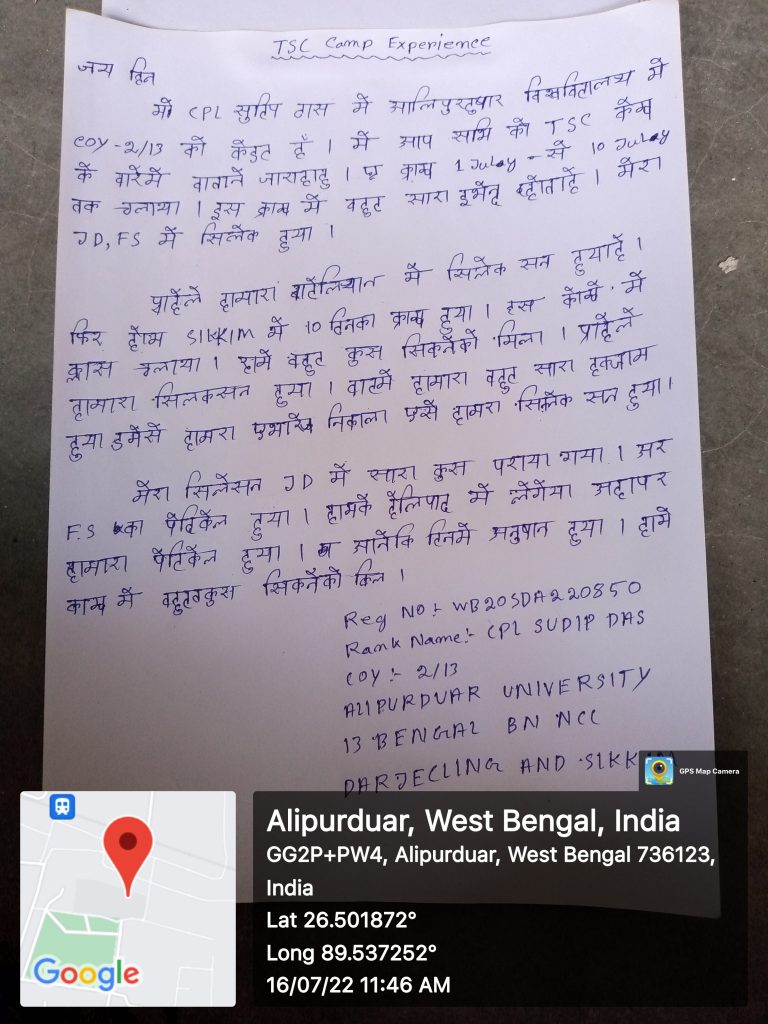 TSC Camp Experience
जय हिन
मों CPL सुदिप दास में आलिपुरदुयार विश्वविद्यालय में
COY-2/13 को केडट हुँ । में आप सभि को TSC केम्प
के वारेमे वाताने जारहाहु । क्राम्प 1 July - से 10 July
तक चलाया । इस क्राम्प में वहुट सारा इभेन्ट होताहे । मेरा
JD, FS में सिलेक हुया ।
प्राहेले हामारा बाटेलियान में सिलेक सन हुयाहे ।
फिर होम SIKKIM में 10 दिनका क्राम्प हुया । इस केम्पे में
क्लास चलाया । हामे वहुट कुस सिकनेको मिला । प्राहेले
हामारा सिलकसन हुया । वादमे हामारा वहुट सारा इकजाम
हुया इमेसे हामरा एभारेज निकाला एसे हामरा सिलेक सन हुया ।
मेरा सिलेसन JD में सारा कुस पराया गया । अर
F.S का पेटिकेल हुया । हामके हेलिपाद में लेगेया अहापर
हामारा पेटिकेल हुया । आनेकि दिनमे अनुषान हुया । हामे
काम्प में वहुतकुस सिकनेको किल ।
Reg No:- WB20SDA220850
Rank Name:- CPL SUDIP DAS
COY:- 2/13
ALIPURDUAR UNIVERSITY
13 BENGAL BN NCC
DARJECLING AND SIKKIM
GPS Map Camera
Google
Alipurduar, West Bengal, India
GG2P+PW4, Alipurduar, West Bengal 736123,
India
Lat 26.501872°
Long 89.537252°
16/07/22 11:46 AM